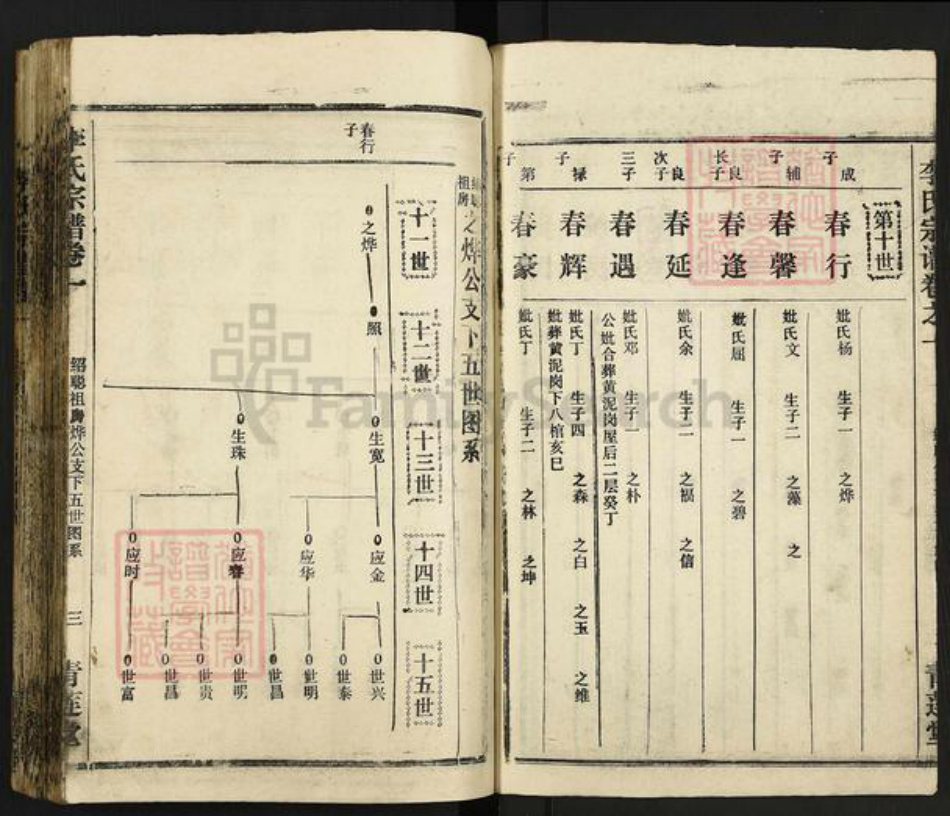 李氏宗谱卷之一
第十世
成子
春行
妣氏杨 生子一 之烨
辅子
春馨
妣氏文 生子二 之藻 之
良长子
春逢
妣氏屈 生子一 之碧
良次子
春延
妣氏余 生子二 之祸 之信
三子
春遇
妣氏邓 生子一 之朴
公妣合葬黄泥岗屋后二层癸丁
禄子
春辉
妣氏丁 生子四 之森 之白 之玉 之维
妣葬黄泥岗下八棺亥巳
第子
春豪
妣氏丁 生子二 之林 之坤
青莲堂
绍聪祖房之烨公支下五世图系
十一世
十二世
十三世
十四世
十五世
春行子
之烨
照
生宽
生珠
应金
应华
应春
应时
世兴
世泰
世明
世昌
世明
世贵
世昌
世富
李氏宗谱卷一
绍聪祖房烨公支下五世图系
三
青莲堂
FamilySearch